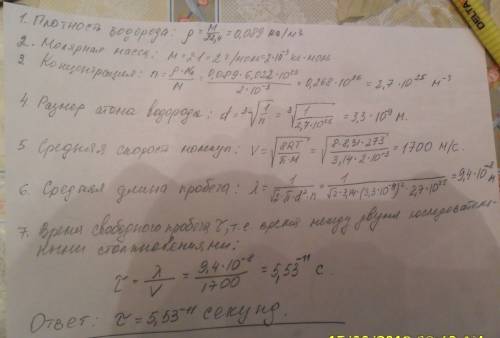 1. Плотность водорода: ρ = M/22,4 = 0,089 кг/м3
2. Молярная масса: M = 2·1 = 2 г/моль = 2·10⁻³ кг·моль
3 Концентрация: n = ρ·Na/M = 0,089·6,022·10²³/2·10⁻³ = 0,268·10²⁶ = 2,7·10²⁵ м⁻³
4. Размер атома водорода: d = ³√(1/n) = ³√(1/2,7·10²⁵) = 3,3·10⁻⁹ м.
5 Средняя скорость молекул: V = √(8RT/π·M) = √(8·8,31·273/3,14·2·10⁻³) = 1700 м/с.
6. Средняя длина пробега: λ = 1/√2·π·d²·n = 1/√2·3,14·(3,3·10⁻⁹)²·2,7·10²⁵ = 9,4·10⁻⁸ м
7. Время свободного пробега τ, т.е. время между двумя последователь-
ными столкновениями:
τ = λ/V = 9,4·10⁻⁸/1700 = 5,53⁻¹¹ с.
Ответ: τ = 5,53⁻¹¹ секунд.